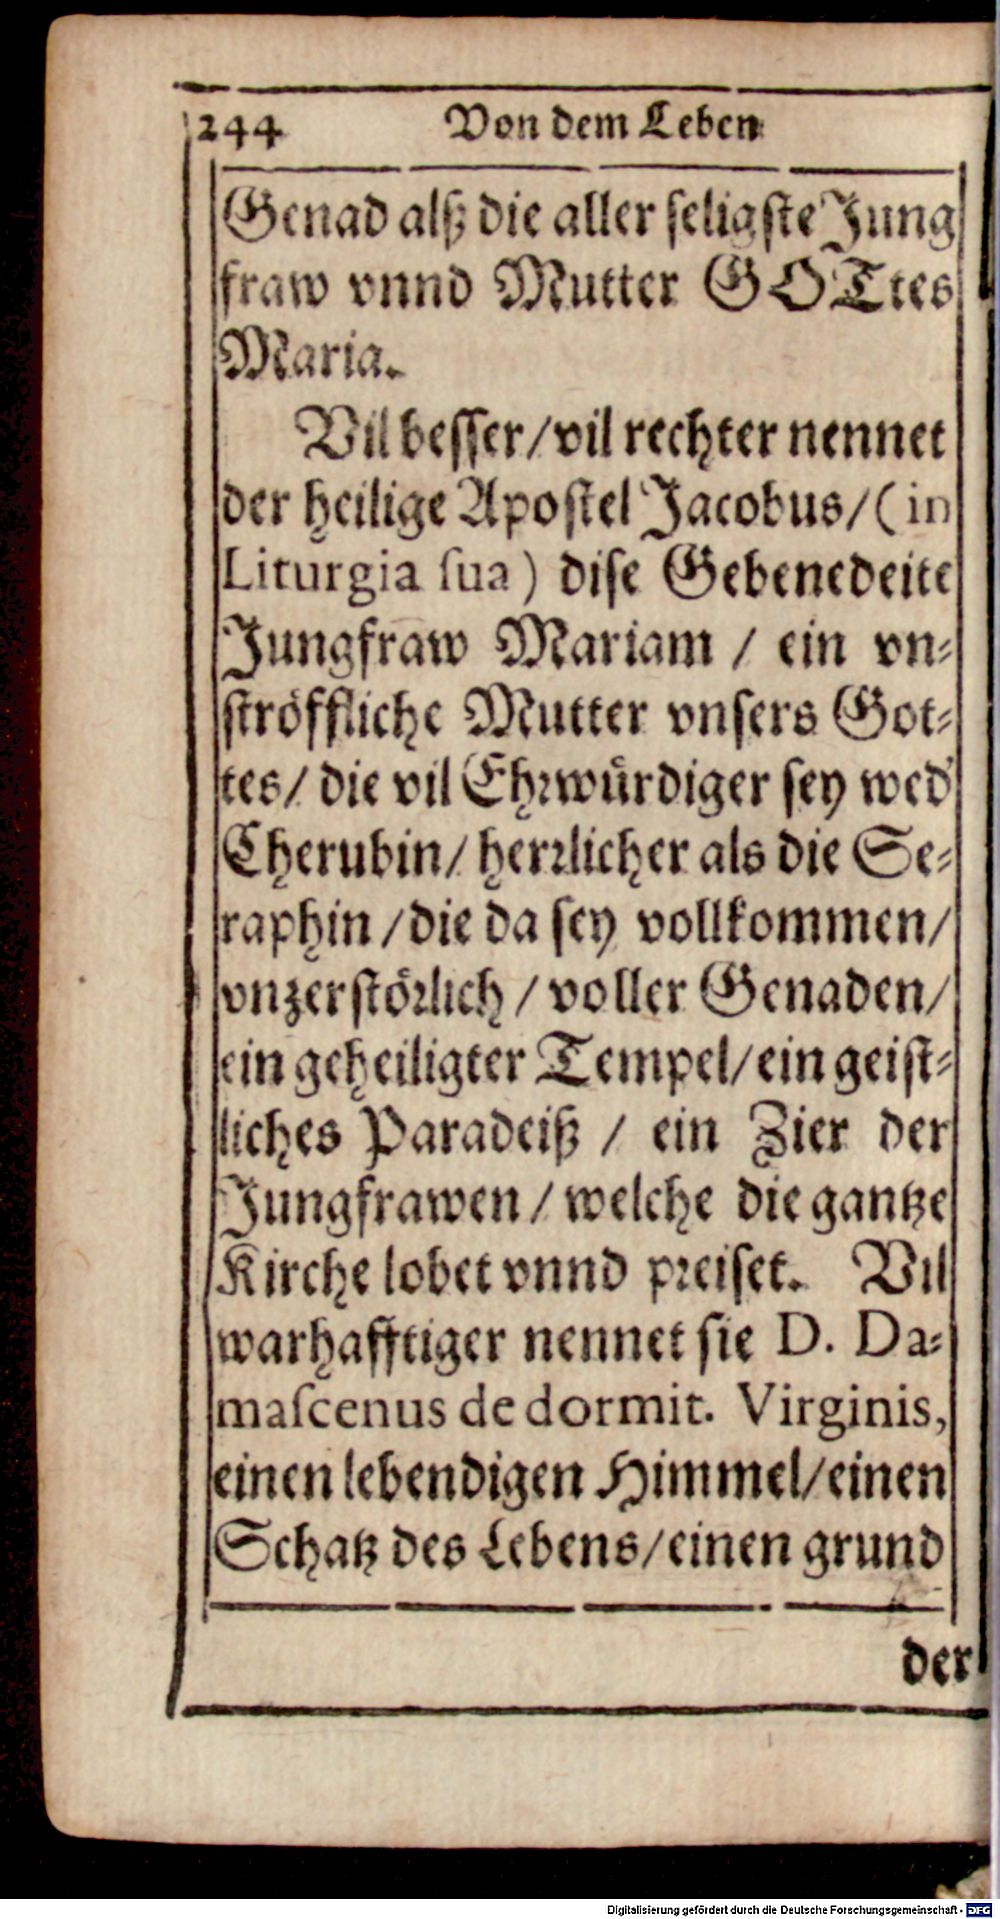 244 Von dem Leben
Genad alß die aller seligste Jung
fraw vnnd Mutter GOTtes
Maria.
Vil besser/ vil rechter nennet
der heilige Apostel Jacobus/ (in
Liturgia ſua) dise Gebenedeite
Jungfraw Mariam / ein vn-
ströffliche Mutter vnsers Got-
tes/ die vil Ehrwürdiger sey wed'
Cherubin/ herrlicher als die Se-
raphin / die da sey vollkommen/
vnzerstörlich / voller Genaden/
ein geheiligter Tempel/ ein geist-
liches Paradeiß / ein Zier der
Jungfrawen / welche die gantze
Kirche lobet vnnd preiset. Vil
warhafftiger nennet sie D. Da-
maſcenus de dormit. Virginis,
einen lebendigen Himmel/ einen
Schatz des Lebens/ einen grund
der
Digitalisierung gefördert durch die Deutsche Forschungsgemeinschaft - DFG